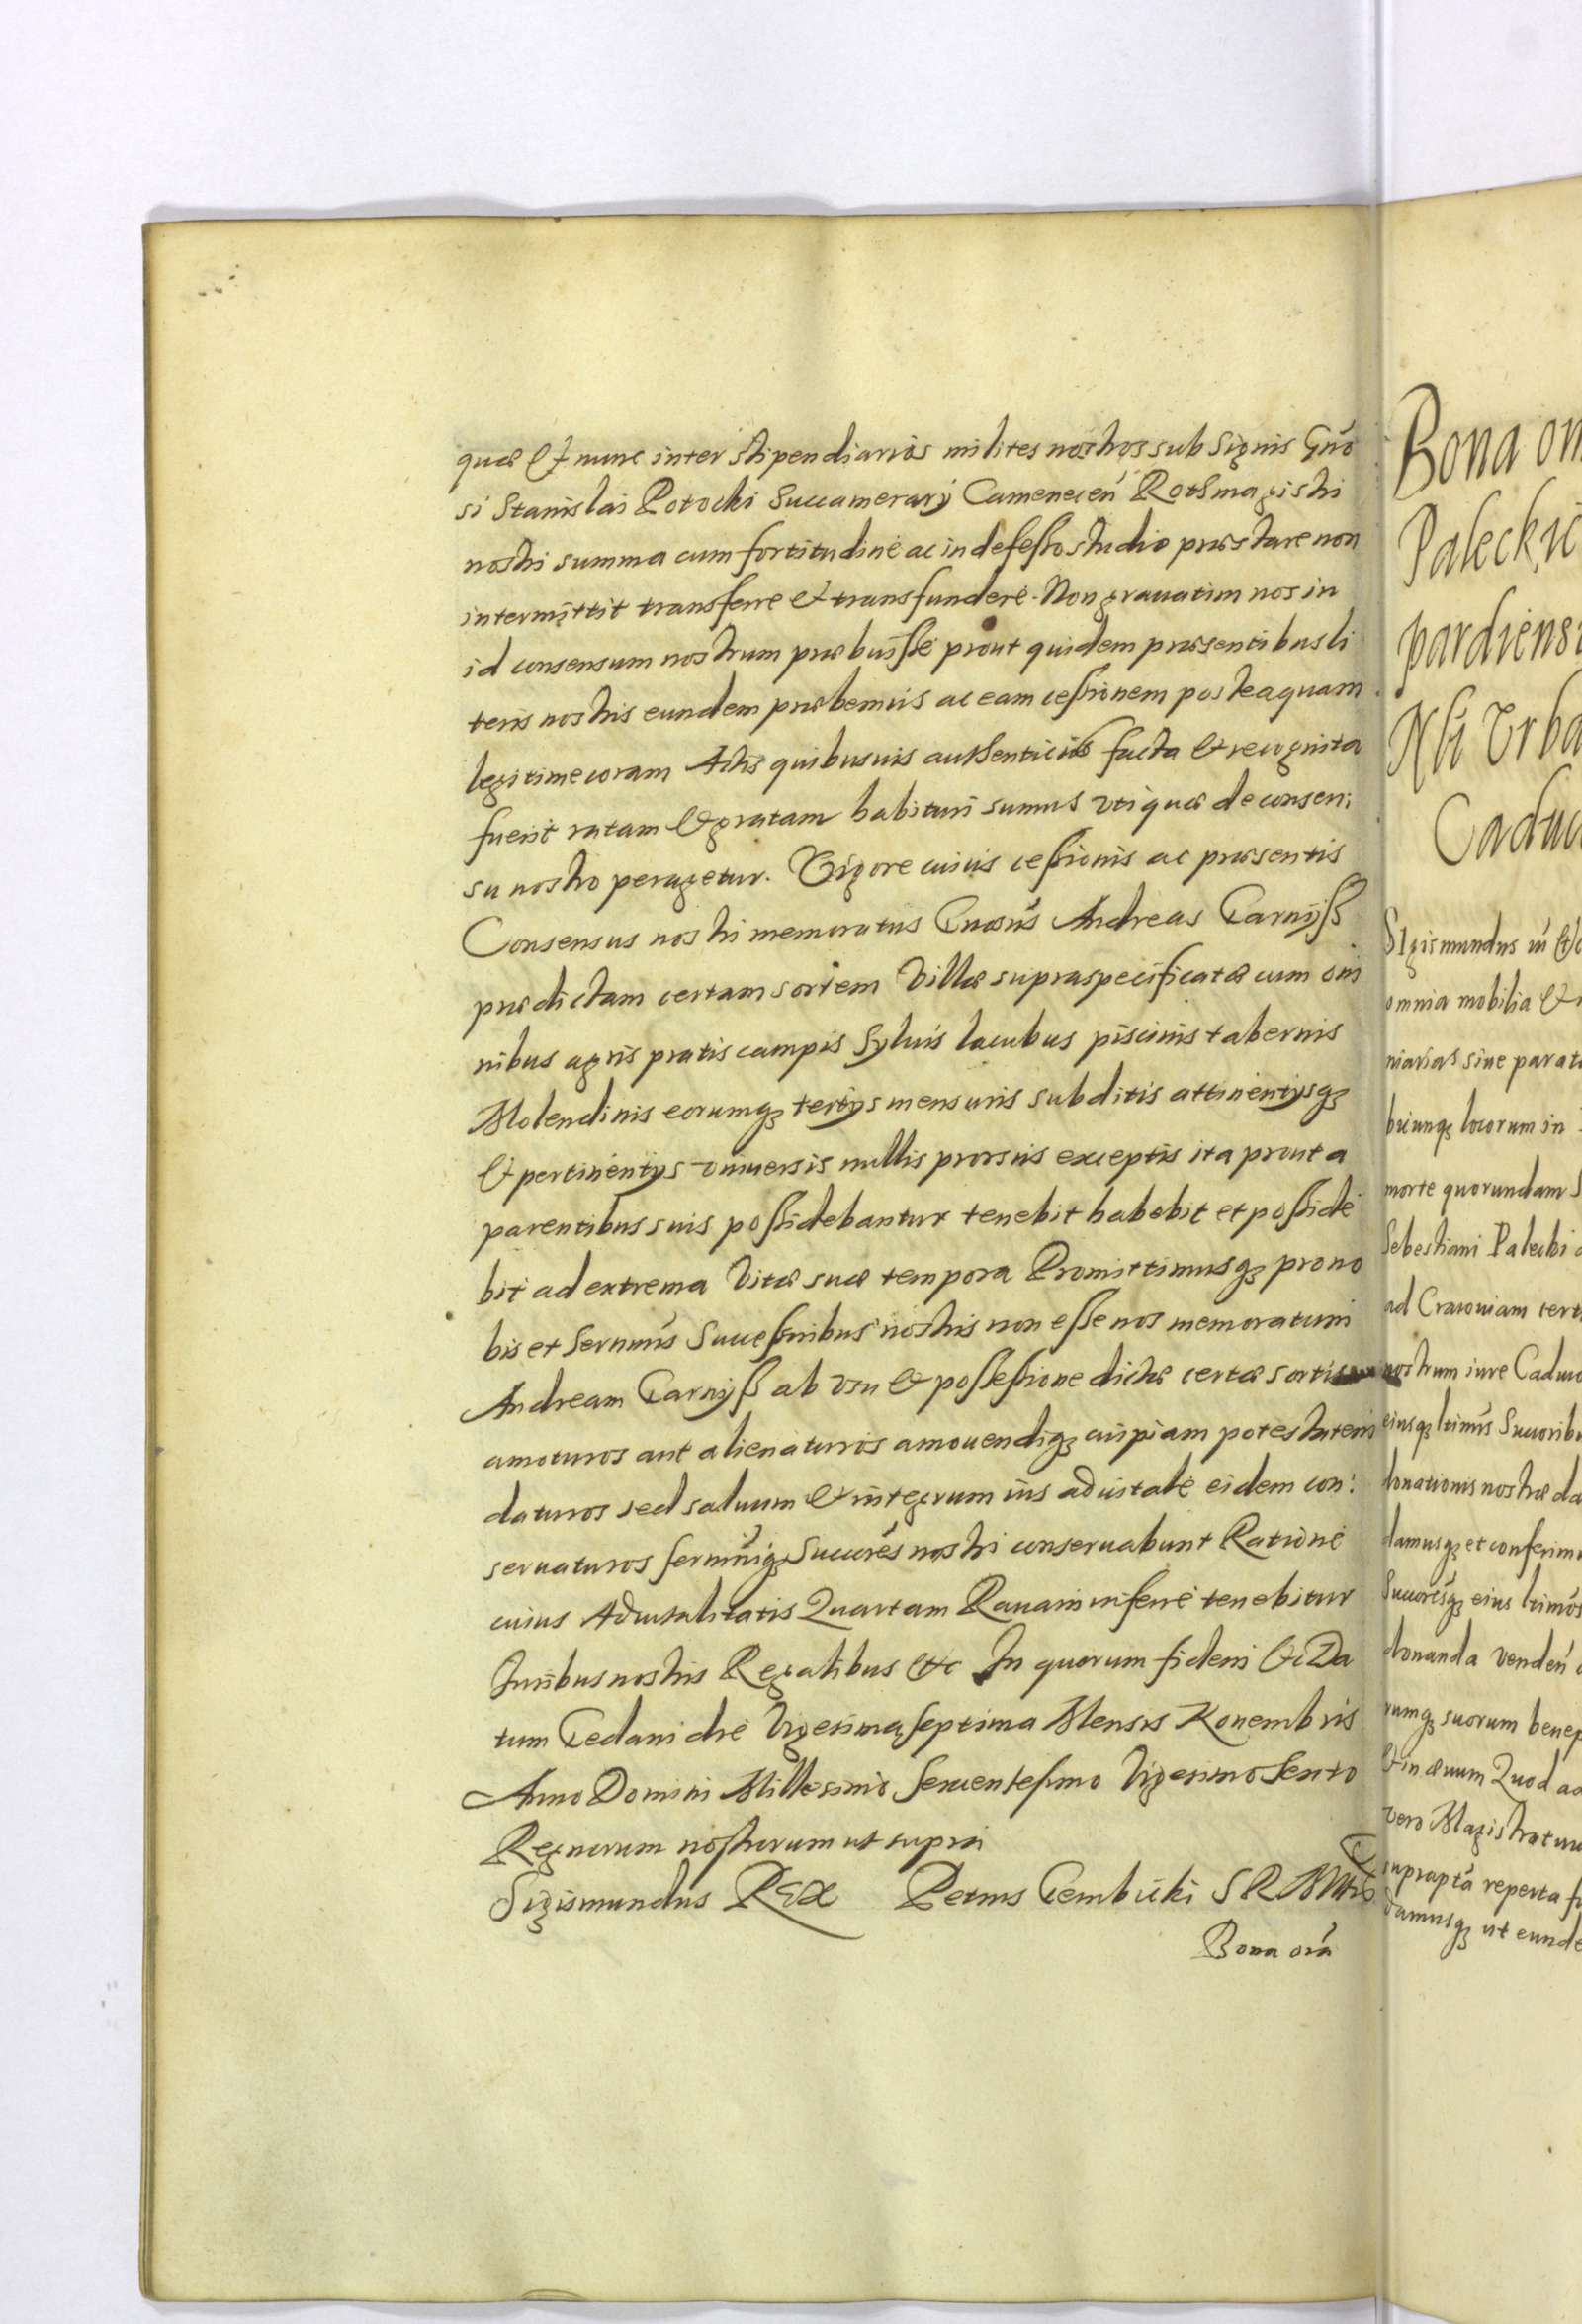 quæ et nunc inter stipendiarios milites nostros sub Signis Gnō
si Stanislai Potocki Succamerarÿ Camenecen̄ Rothmagistri
nostri summa cum fortitudine ac indefesso studio præstare non
intermittit transferre et transfundere. Non gravatim nos in
id consensum nostrum præbuisse prout quidem præsentibus li
teris nostris eundem præbemus ac eam cessionem posteaquam
legitime coram Actis quibusuis authenticis facta et recognita
fuerit ratam et gratam habituri sumus vti quæ de consen:
su nostro peragetur. Vigore cuius cessionis ac præsentis
Consensus nostri memoratus Gnosūs Andreas Garnÿsz
prædictam certam sortem Villæ supraspecificatæ cum om
nibus agris pratis campis Syluis lacubus piscinis tabernis
Molendinis eorumq3 tertÿs mensuris subditis attinentÿsq3
et pertinentÿs vniuersis nullis prorsus exceptis ita prout a
parentibus suis possidebantur tenebit habebit et posside
bit ad extrema Vitæ suæ tempora Promittimusq3 pro no
bis et Sernmīs Successoribus nostris non esse nos memoratum
Andream Garnÿsz ab vsu et possessione dictæ certæ sortis
amoturos aut alienaturos amouendiq3 cuipiam potestatem
daturos sed saluum et integrum ius aduitale eidem con:
seruaturos sernmīq3 Succorēs nostri conseruabunt Ratione
cuius Aduitalitatis Quartam Rauam inferre tenebitur
Juribus nostris Regalibus etc In quorum fidem etc Da
tum Gedani die Vigesima septima Mensis Nouembris
Anno Domini Millesimo Sexcentesimo Vigesimo Sexto
Regnorum nostrorum ut supra
Sigismundus REX Petrus Gembicki S R M
Bona om̄a
Bona om
Paleckic
pardiensi
Nli Vrba
Caduc
SIgismundus
omnia mobilia et
niarias siue parat
biumq3 locorum in
morte quorundam S
Sebestiani Palecki
ad Cracouiam cert
nostrum iure Caduc
eiusq3 ltimīs Succorib
donationis nostræ da
damusq3 et conferim
Succorēsq3 eius ltimōs
donanda venden̄
rumq3 suorum benep
et in æuum Quod ad
vero Magistratuu
suprapta reperta fu
damusq3 ut eunde